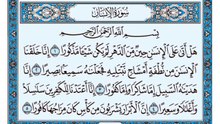 سُورَةُ الإِنسَانِ
بِسْمِ اللَّهِ الرَّحْمَٰنِ الرَّحِيمِ
هَلْ أَتَىٰ عَلَى الْإِنسَانِ حِينٌ مِّنَ الدَّهْرِ لَمْ يَكُن شَيْئًا مَّذْكُورًا ۝١ إِنَّا خَلَقْنَا
الْإِنسَانَ مِن نُّطْفَةٍ أَمْشَاجٍ نَّبْتَلِيهِ فَجَعَلْنَاهُ سَمِيعًا بَصِيرًا ۝٢ إِنَّا
هَدَيْنَاهُ السَّبِيلَ إِمَّا شَاكِرًا وَإِمَّا كَفُورًا ۝٣ إِنَّا أَعْتَدْنَا لِلْكَافِرِينَ سَلَاسِلَا
وَأَغْلَالًا وَسَعِيرًا ۝٤ إِنَّ الْأَبْرَارَ يَشْرَبُونَ مِن كَأْسٍ كَانَ مِزَاجُهَا كَافُورًا ۝٥